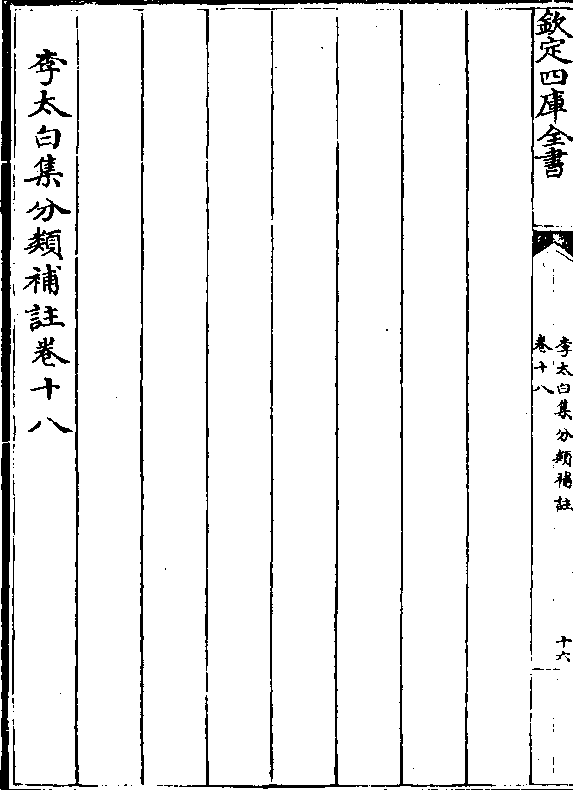 欽定四庫全書
李太白集分類補註
卷十八
十六
李太白集分類補註卷十八